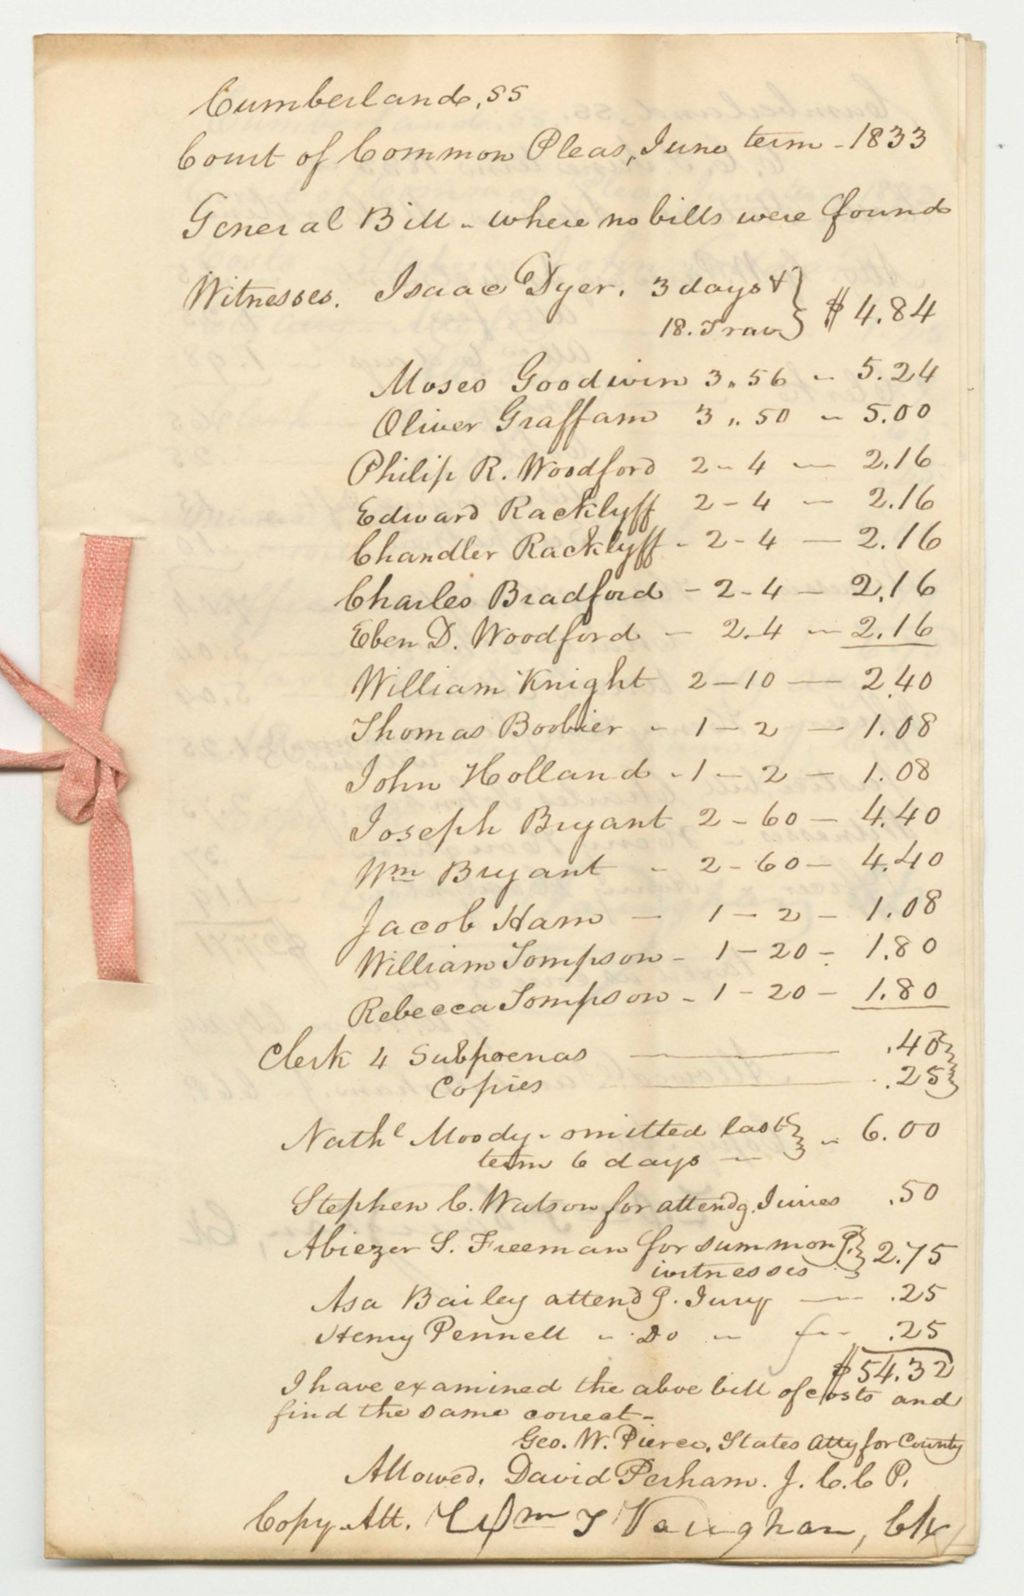 Cumberland, ss
Court of Common Pleas, June term - 1833
General Bill - where no bills were found
Witnesses. Isaac Dyer. 3 days & } $4.84
18. Trav }
Moses Goodwin 3 " 56 - 5.24
Oliver Graffam 3 " 50 - 5.00
Philip R. Woodford 2 - 4 - 2.16
Edward Racklyff 2 - 4 - 2.16
Chandler Racklyff - 2 - 4 - 2.16
Charles Bradford - 2 - 4 - 2.16
Eben D. Woodford - 2 . 4 - 2.16
William Knight 2 - 10 - 2.40
Thomas Boobier - 1 - 2 - 1.08
John Holland - 1 - 2 - 1.08
Joseph Bryant 2 - 60 - 4.40
Wm Bryant - 2 - 60 - 4.40
Jacob Ham - 1 - 2 - 1.08
William Tompson - 1 - 20 - 1.80
Rebecca Tompson - 1 - 20 - 1.80
Clerk 4 Subpoenas - .40 }
Copies - .25 }
Nathl Moody - omitted last } - 6.00
term 6 days -
Stephen C. Watson for attendg. Juries .50
Abiezer S. Freeman for summong. } 2.75
witnesses }
Asa Bailey attend g. Jury - .25
Henry Pennell " Do " .25
$54.32
I have examined the above bill of costs and
find the same correct -
Geo. W. Pierce, States Atty for County
Allowed, David Perham. J. C. C P.
Copy Att. Wm T Vaughan, Clk